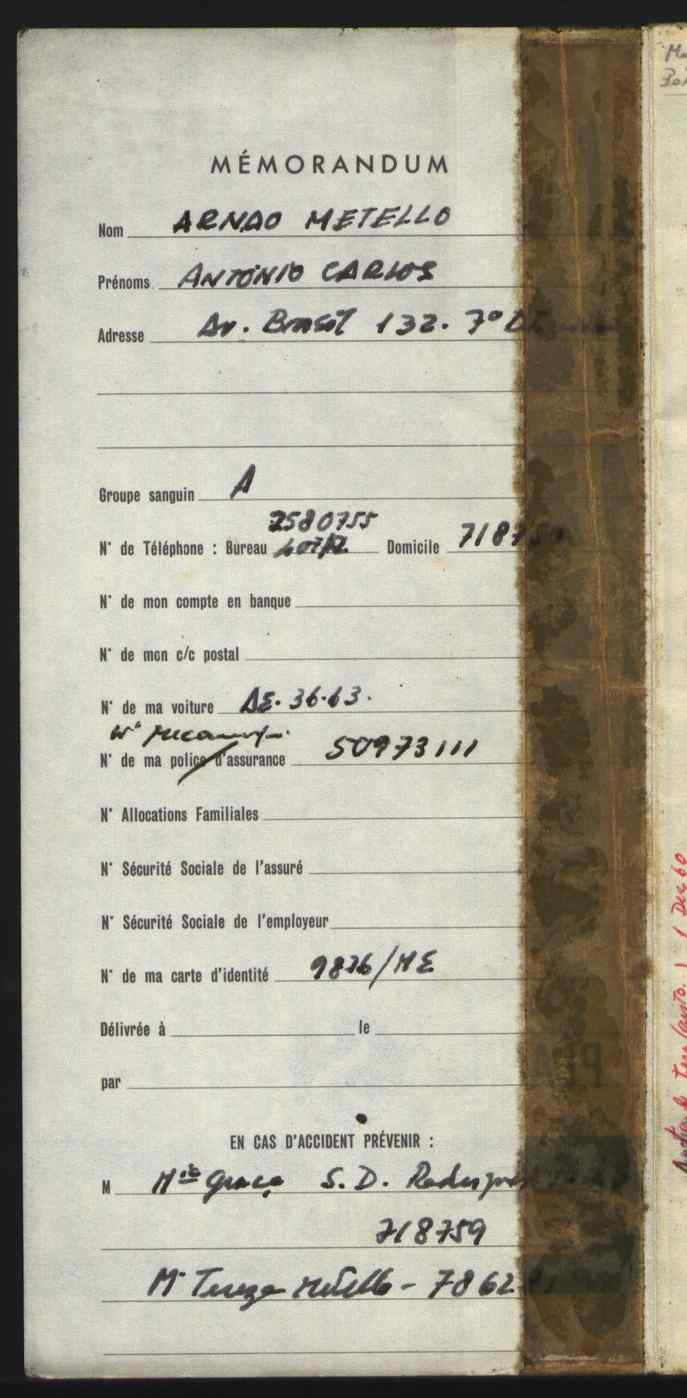 MÉMORANDUM
Nom ARNAO METELLO
Prénoms ANTÓNIO CARLOS
Adresse Av. Brasil 132. 7º D
Groupe sanguin A
2580755
N° de Téléphone : Bureau Domicile 718759
N° de mon compte en banque
N° de mon c/c postal
N° de ma voiture AE. 36.63.
N° de ma police d'assurance 50973111
N° Allocations Familiales
N° Sécurité Sociale de l'assuré
N° Sécurité Sociale de l'employeur
N° de ma carte d'identité 9836/ME
Délivrée à le
par
EN CAS D'ACCIDENT PRÉVENIR :
M Mª Graça S. D.
718759
Mª Tereza Metello - 7862
1 Dez 60